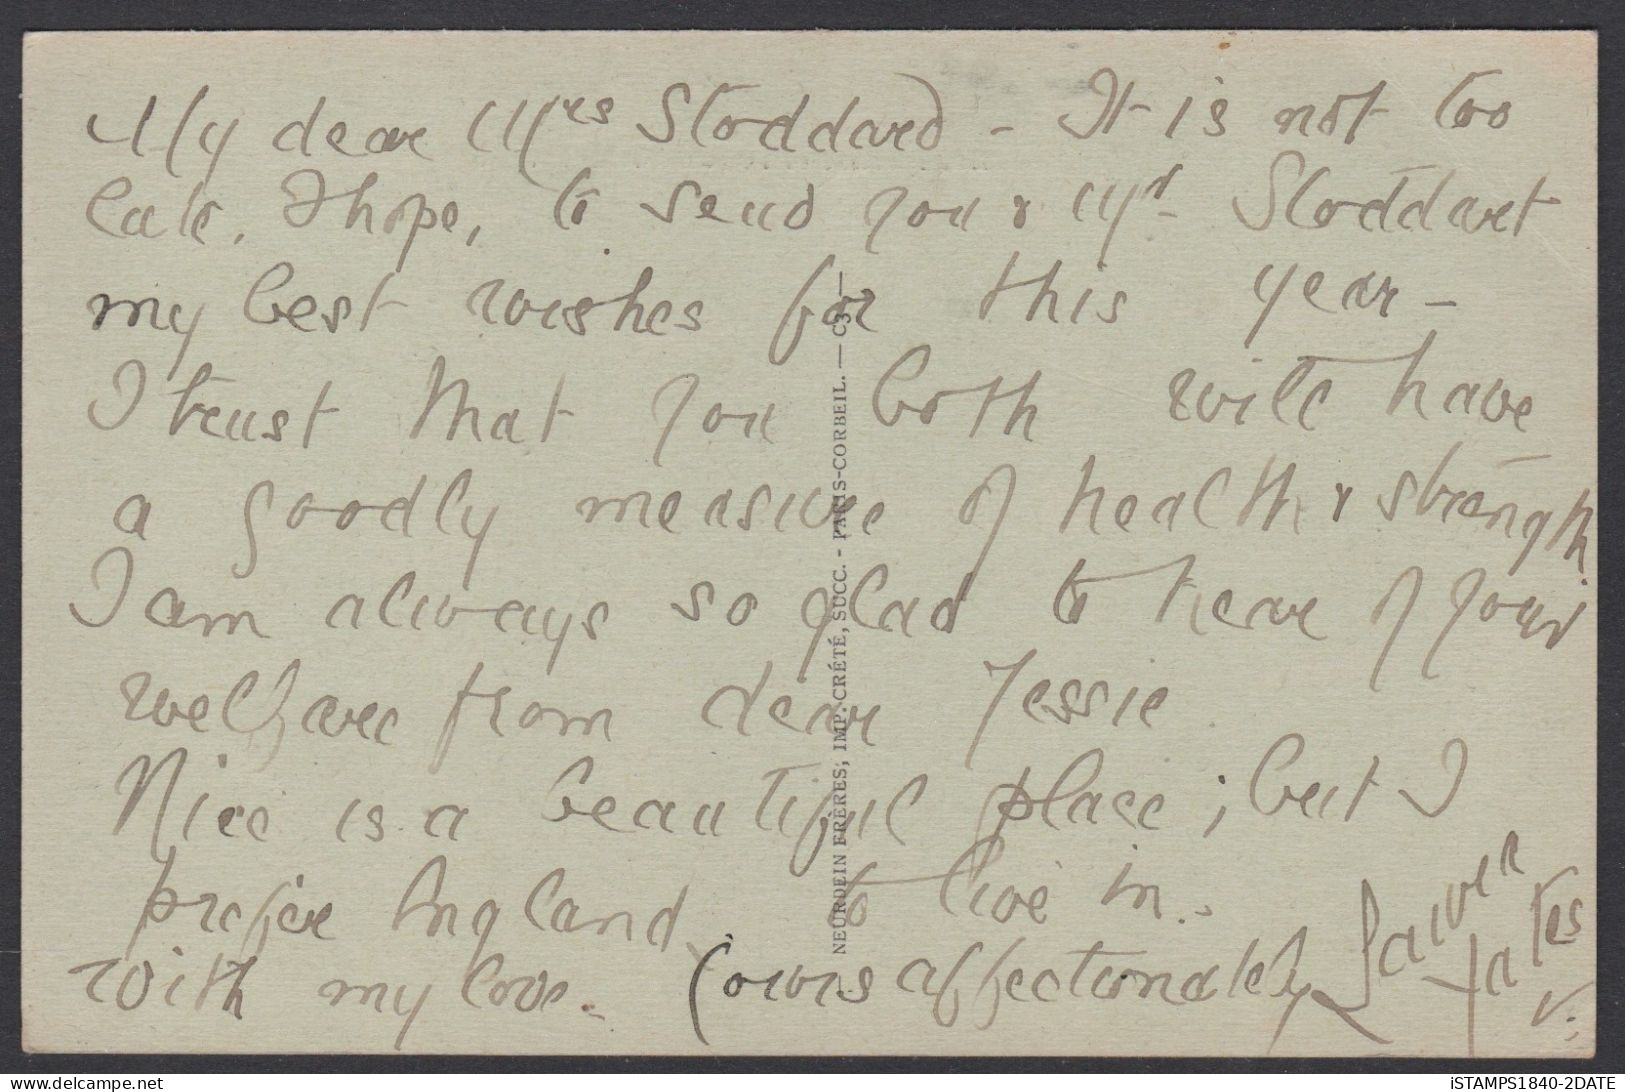 My dear Mrs Stoddard - It is not too
late, I hope, to send you & Mr. Stoddart
my best wishes for this year -
I trust that you both will have
a goodly measure of health & strength
I am always so glad to hear of your
welfare from dear Jessie.
Nice is a beautiful place; but I
prefer England to live in. -
with my love. - Yours affectionately
NEURDEIN FRÈRES; IMP. CRÉTÉ, SUCC. - PARIS-CORBEIL. — C3 —
iSTAMPS1840-2DATE